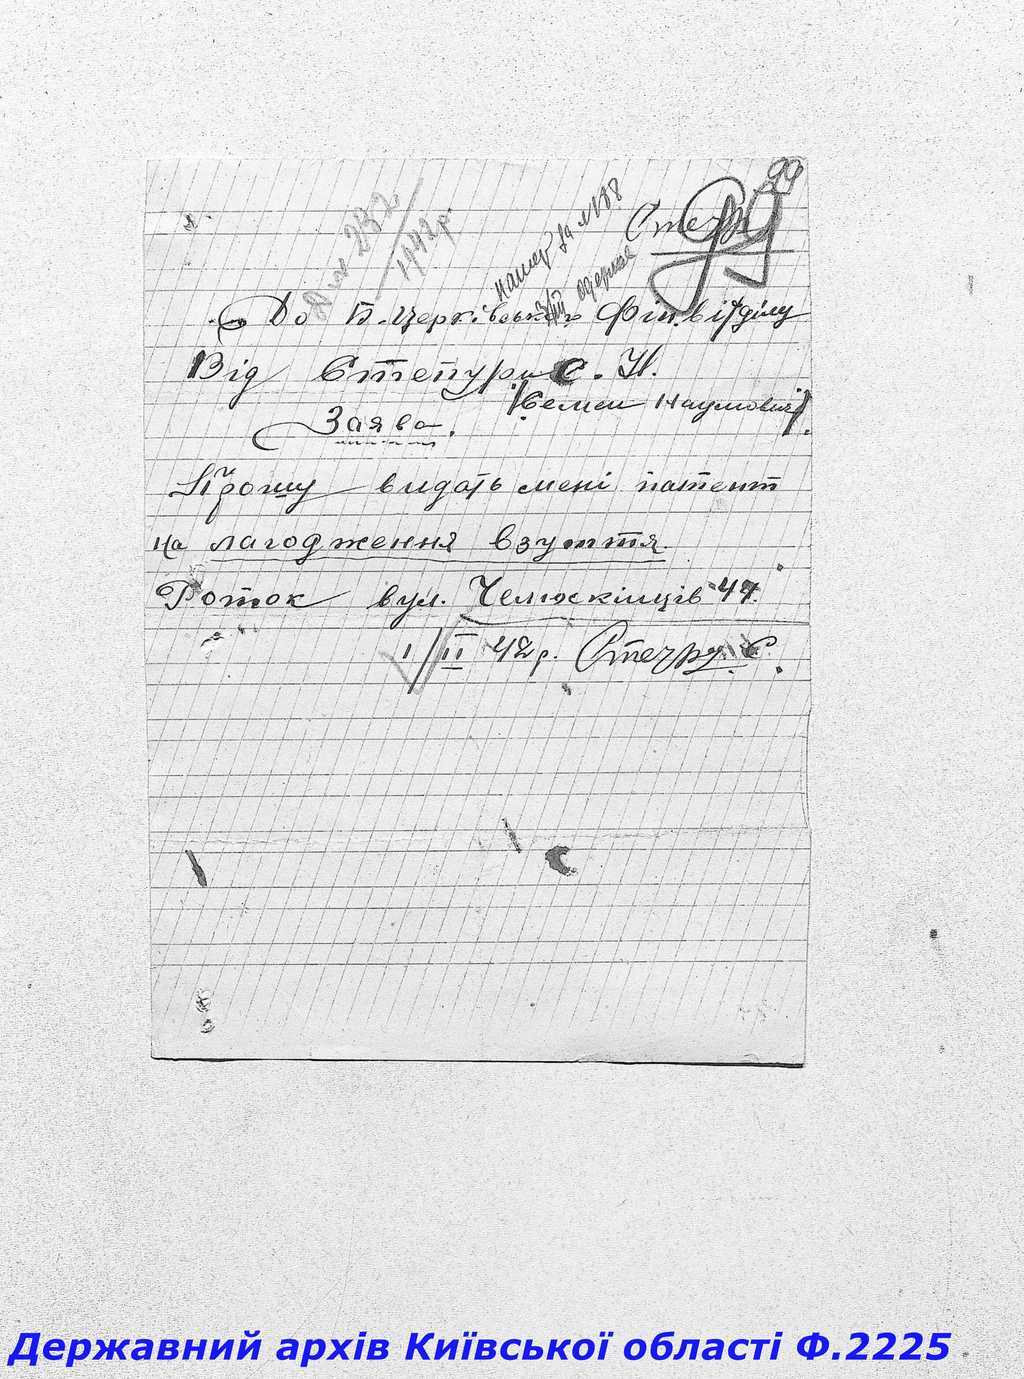 99
№ 232
1942 р.
До Б. Церківського Фінвідділу
Від Степури С. Н.
/Семен Наумович/.
Заява.
Прошу видать мені патент
на лагодження взуття.
Роток вул. Челюскінців 47.
1/II 42р.
Державний архів Київської області Ф.2225